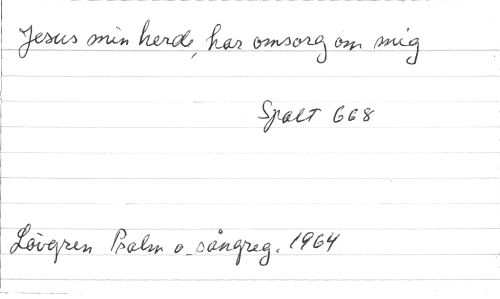 Jesus min herde, har omsorg om mig
Spalt 668
Lövgren Psalm o. sångreg. 1964